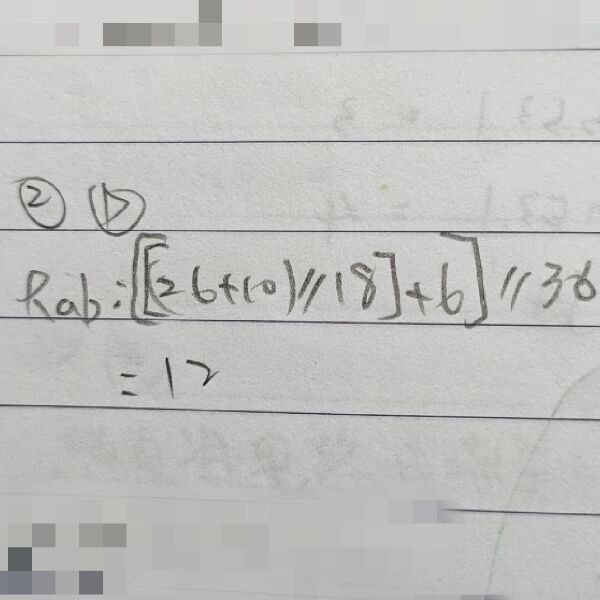 ② ⓑ
Rab:[[(26+10)//18]+6]//36
=12